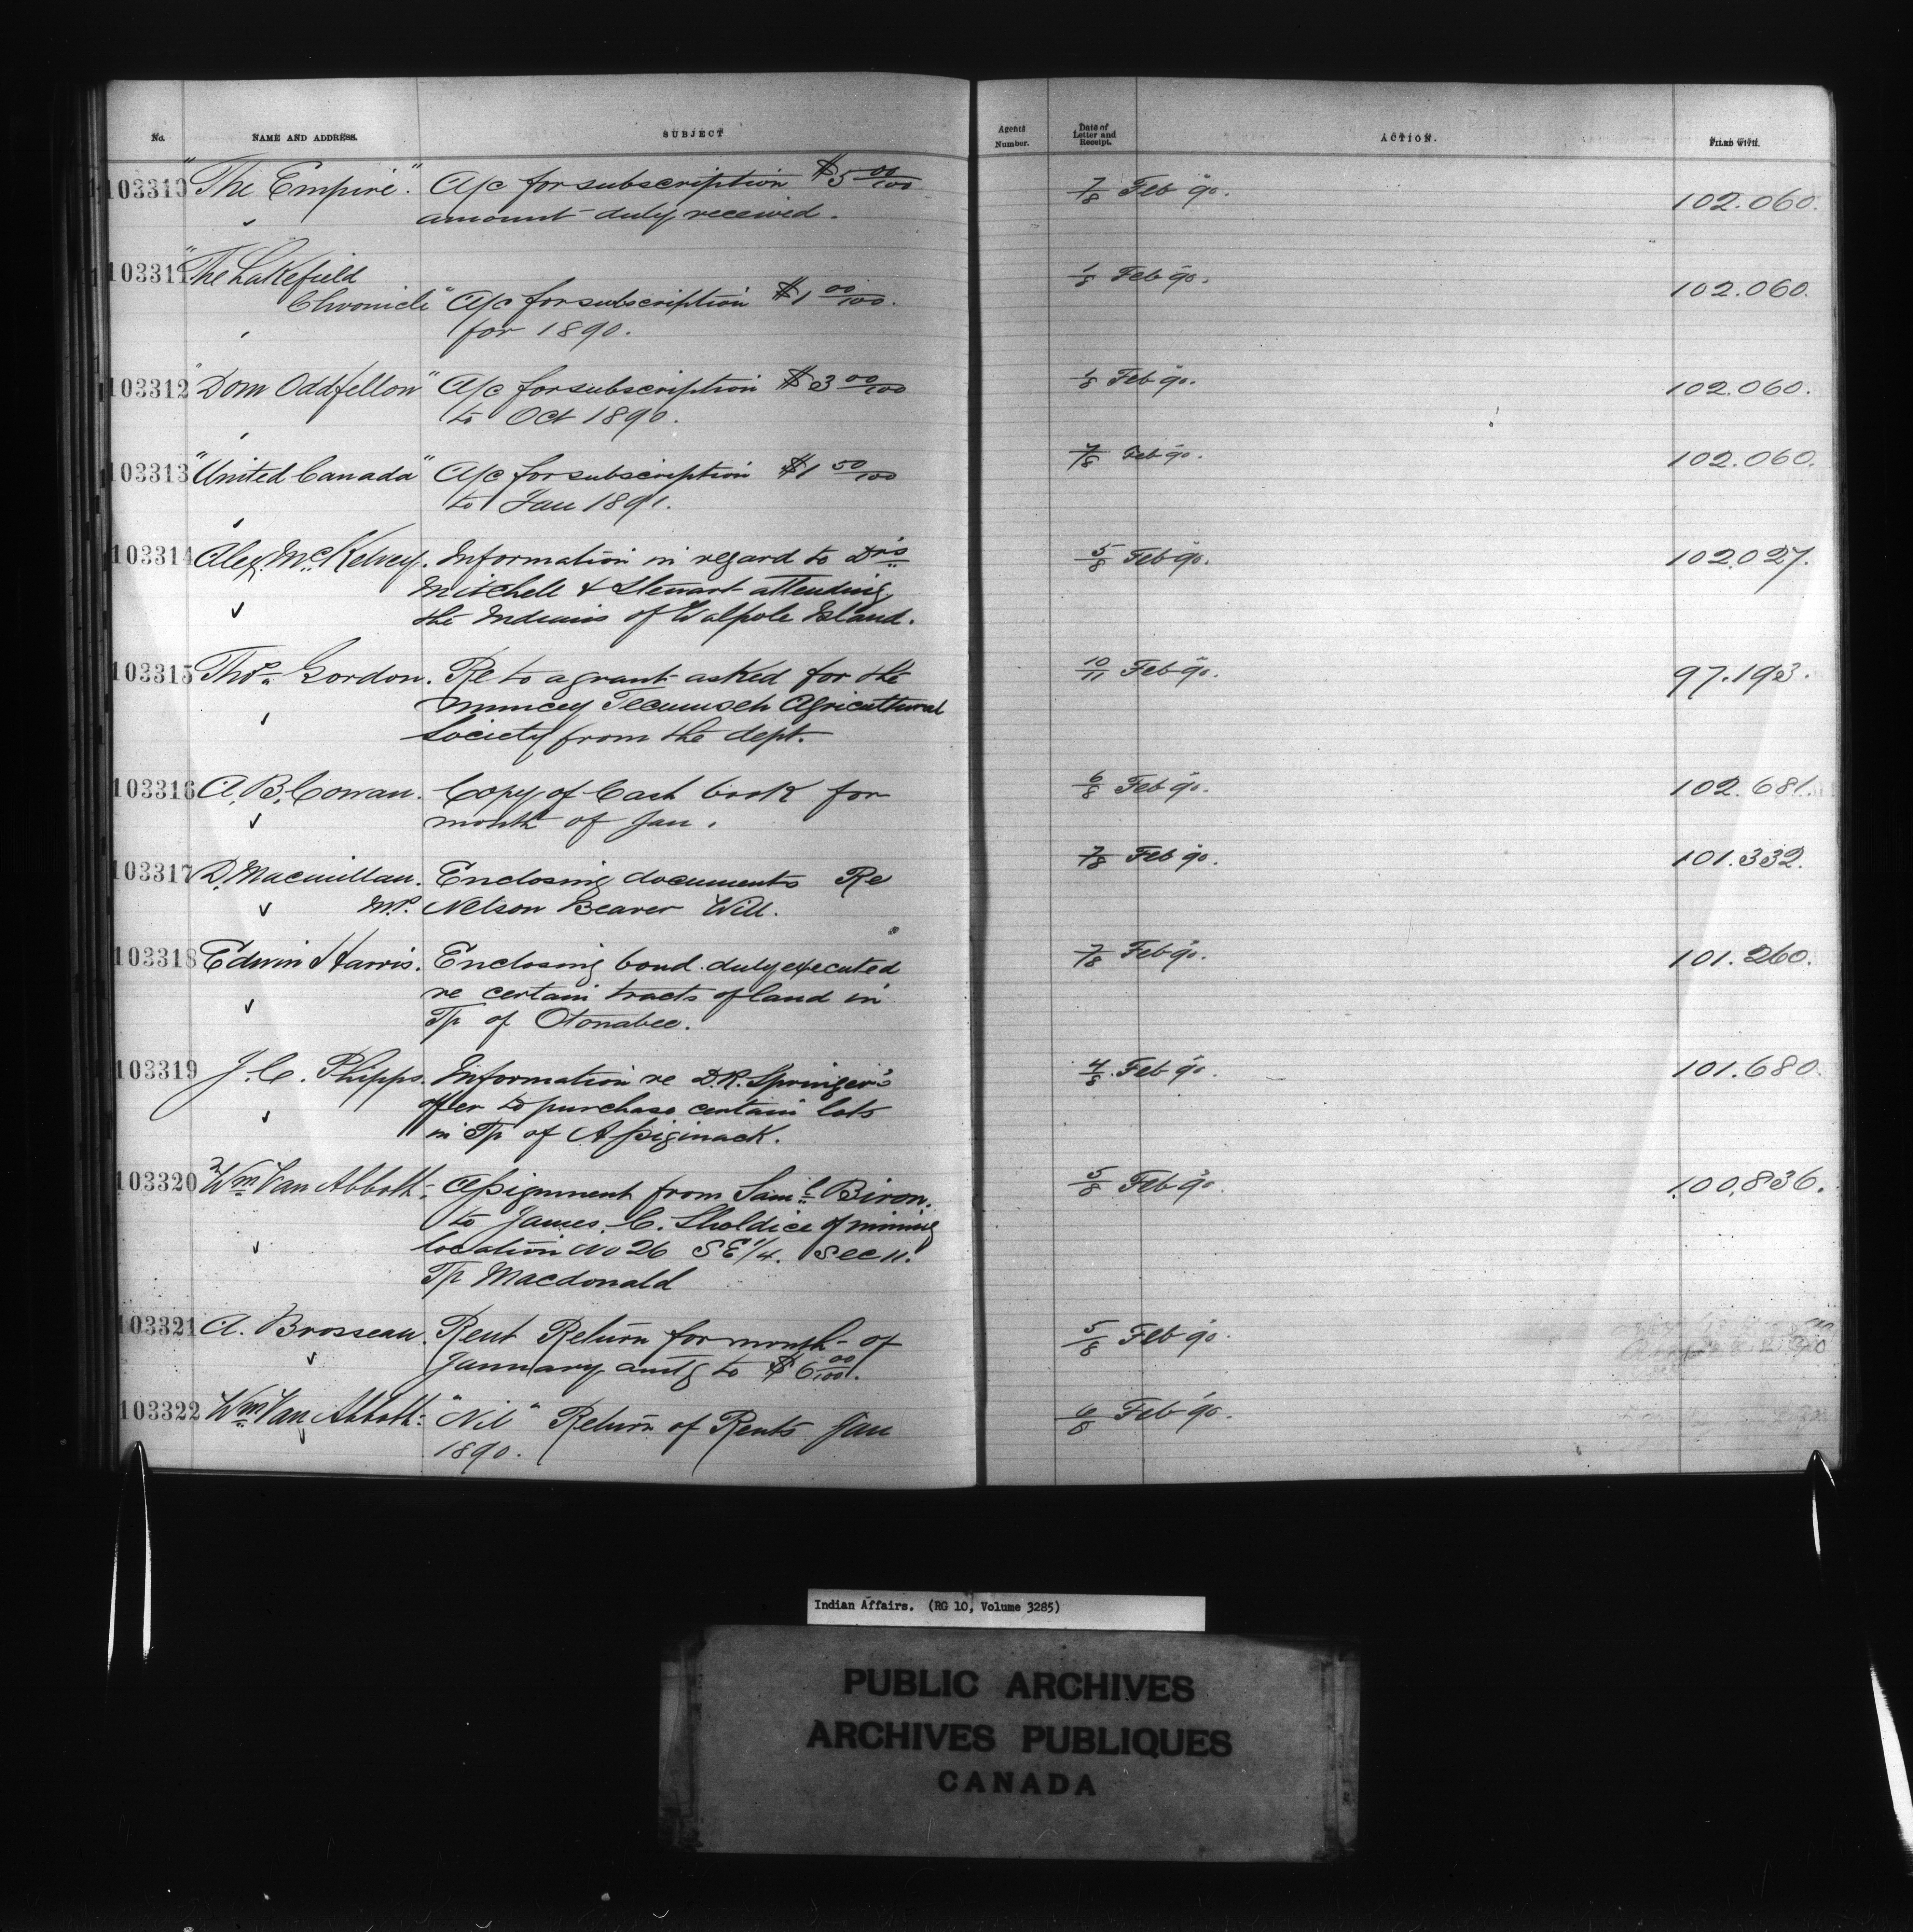 No. NAME AND ADDRESS. SUBJECT Agents Number. Date of Letter and Receipt. ACTION. FILED WITH.
103310 "The Empire". A/c for subscription $5 00/100 7/8 Feb 90. 102.060.
amount duly received.
103311 "The Lakefield 1/8 Feb 90. 102.060.
Chronicle" A/c for subscription $1 00/100.
for 1890.
103312 "Dom Oddfellow" A/c for subscription $3 00/100 1/8 Feb 90. 102.060.
to Oct 1890.
103313 "United Canada" A/c for subscription $1 50/100 7/8 Feb 90. 102.060.
to Jan 1891.
103314 Alex. McKelvey. Information in regard to Drs 5/8 Feb 90. 102.027.
Mitchell & Stewart attending
the Indians of Walpole Island.
103315 Thos. Gordon. Re to a grant asked for the 10/11 Feb 90. 97.193.
Muncey Tecumseh Agricultural
Society from the dept.
103316 A. B. Cowan. Copy of Cash book for 6/8 Feb 90. 102.681.
month of Jan.
103317 D. Macmillan. Enclosing documents Re 7/8 Feb 90. 101.332.
M.P. Nelson Beaver Will.
103318 Edwin Harris. Enclosing bond duly executed 7/8 Feb 90. 101.260.
re certain tracts of land in
Tp of Otonabee.
103319 J. C. Phipps. Information re D.R. Springer's 4/8 Feb 90. 101.680.
offer to purchase certain lots
in Tp of Assiginack.
103320 Wm Van Abbott. Assignment from Saml Biron. 5/8 Feb 90. 100,836.
to James C. Sholdice of mining
location No 26 SE 1/4. Sec 11.
Tp Macdonald
103321 A. Brosseau. Rent Return for month of 5/8 Feb 90.
January amtg to $6 00/100.
103322 Wm Van Abbott. "Nil" Return of Rents Jan 6/8 Feb 90.
1890.
Indian Affairs. (RG 10, Volume 3285)
PUBLIC ARCHIVES
ARCHIVES PUBLIQUES
CANADA